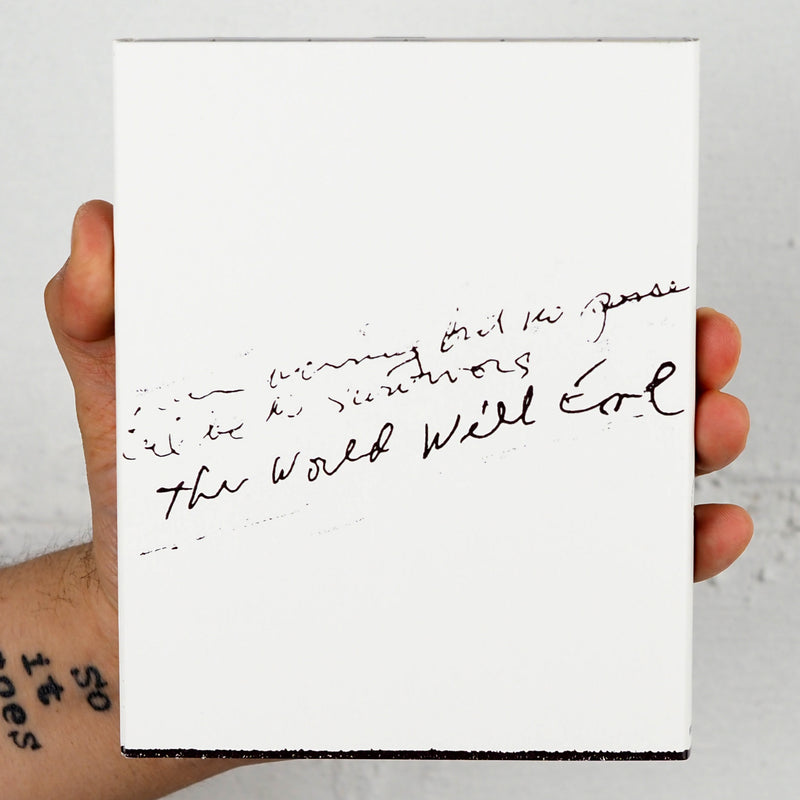 warning and no
be no survivors
The World Will End
So
it
goes